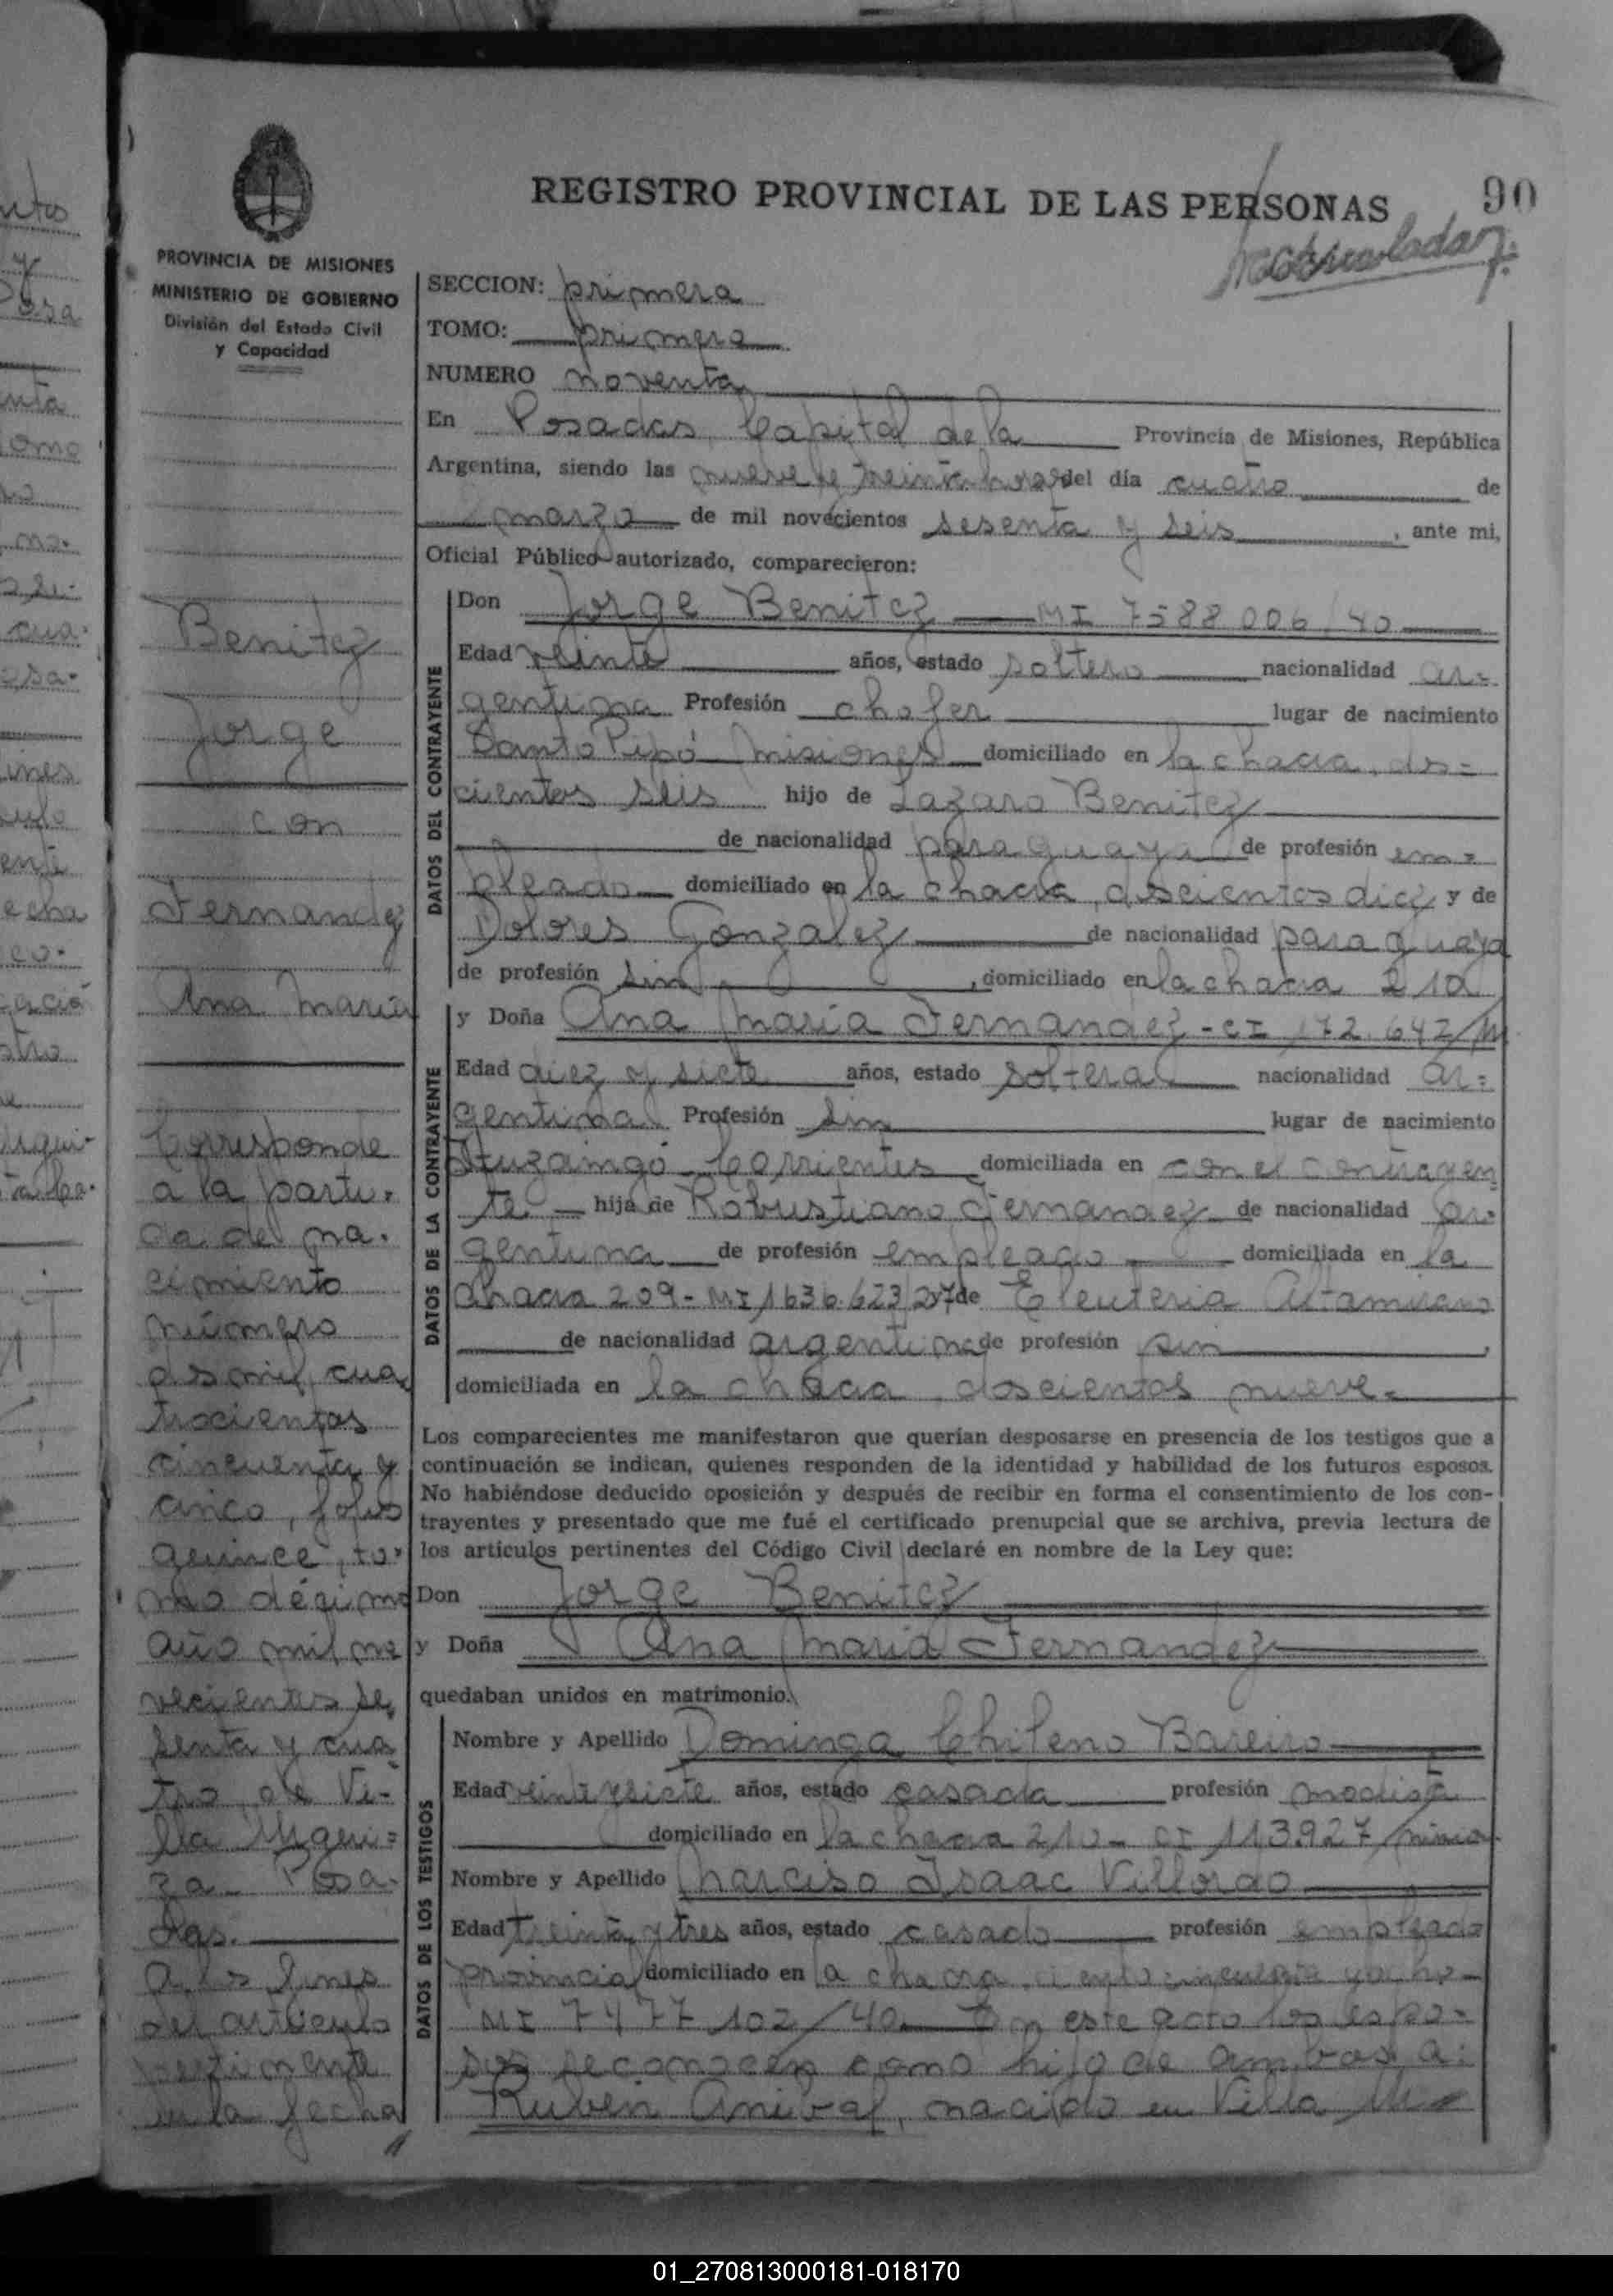 REGISTRO PROVINCIAL DE LAS PERSONAS
90
PROVINCIA DE MISIONES
MINISTERIO DE GOBIERNO
División del Estado Civil
y Capacidad
Benitez
Jorge
con
Fernandez
Ana Maria
Corresponde
a la parti-
da de na-
cimiento
número
dos mil cua
trocientos
cincuenta y
cinco, folios
quince, to-
mo décimo
año mil no
vecientos se
senta y cua
tro, de Vi-
lla Urqui=
za Posa-
das.
A los fines
del artículo
pertinente
en la fecha
SECCION: primera
TOMO: primero
NUMERO noventa
En Posadas, Capital de la Provincia de Misiones, República
Argentina, siendo las nueve y treinta horas del día cuatro de
marzo de mil novecientos sesenta y seis, ante mi,
Oficial Público autorizado, comparecieron:
DATOS DEL CONTRAYENTE
Don Jorge Benitez MI 7588006/40
Edad veinte años, estado soltero nacionalidad ar=
gentina Profesión chofer lugar de nacimiento
Santo Pipó Misiones domiciliado en la chacra, dos=
cientos seis hijo de Lazaro Benitez
de nacionalidad paraguaya de profesión em=
pleado domiciliado en la chacra, doscientos diez y de
Dolores Gonzalez de nacionalidad paraguaya
de profesión sin, domiciliado en la chacra 210
DATOS DE LA CONTRAYENTE
y Doña Ana Maria Fernandez - CI 172.642/M
Edad diez y siete años, estado soltera nacionalidad ar=
gentina Profesión sin lugar de nacimiento
Ituzaingó Corrientes domiciliada en con el contrayen
te hija de Robustiano Fernandez de nacionalidad ar-
gentina de profesión empleado domiciliada en la
chacra 209 - MI 1636.623/27 y de Eleuteria Altamirano
de nacionalidad argentina de profesión sin,
domiciliada en la chacra, doscientos nueve.
Los comparecientes me manifestaron que querían desposarse en presencia de los testigos que a
continuación se indican, quienes responden de la identidad y habilidad de los futuros esposos.
No habiéndose deducido oposición y después de recibir en forma el consentimiento de los con-
trayentes y presentado que me fué el certificado prenupcial que se archiva, previa lectura de
los artículos pertinentes del Código Civil declaré en nombre de la Ley que:
Don Jorge Benitez
y Doña Ana Maria Fernandez
quedaban unidos en matrimonio.
DATOS DE LOS TESTIGOS
Nombre y Apellido Dominga Chileno Bareiro
Edad veinte y siete años, estado casada profesión modista
domiciliado en la chacra 210 - CI 113927/
Nombre y Apellido Narciso Isaac Villordo
Edad treinta y tres años, estado casado profesión empleado
provincial domiciliado en la chacra, ciento cincuenta y ocho
MI 7477.102/40 En este acto los espo=
sos reconocen como hijo de ambos a:
Ruben Anibal, nacido en Villa Ur=
01_270813000181-018170